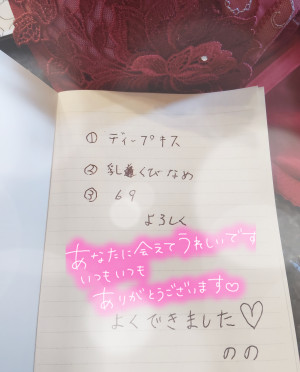 ① ディープキス
② 乳くびなめ
③ 69
よろしく
あなたに会えてうれしいです
いつもいつも
ありがとうございます♡
よくできました♡
のの